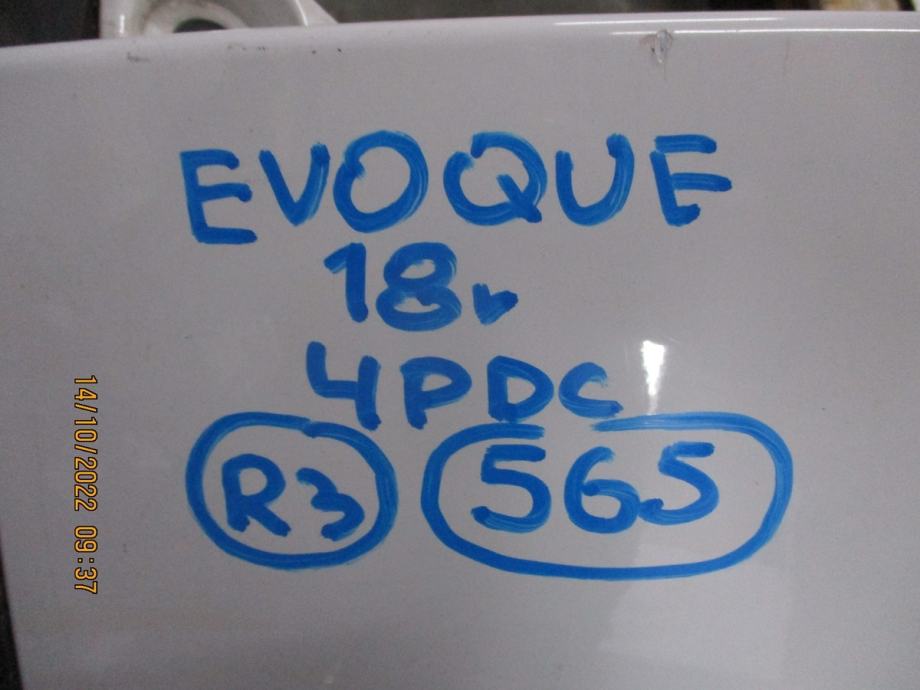 EVOQUE
18v
4PDC
R3 565
14/10/2022 09:37